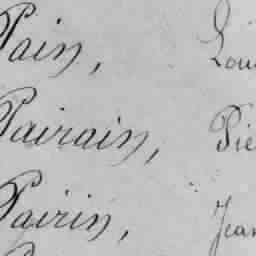 Pain, Loui
Pairain, Pie
Pairin, Jean